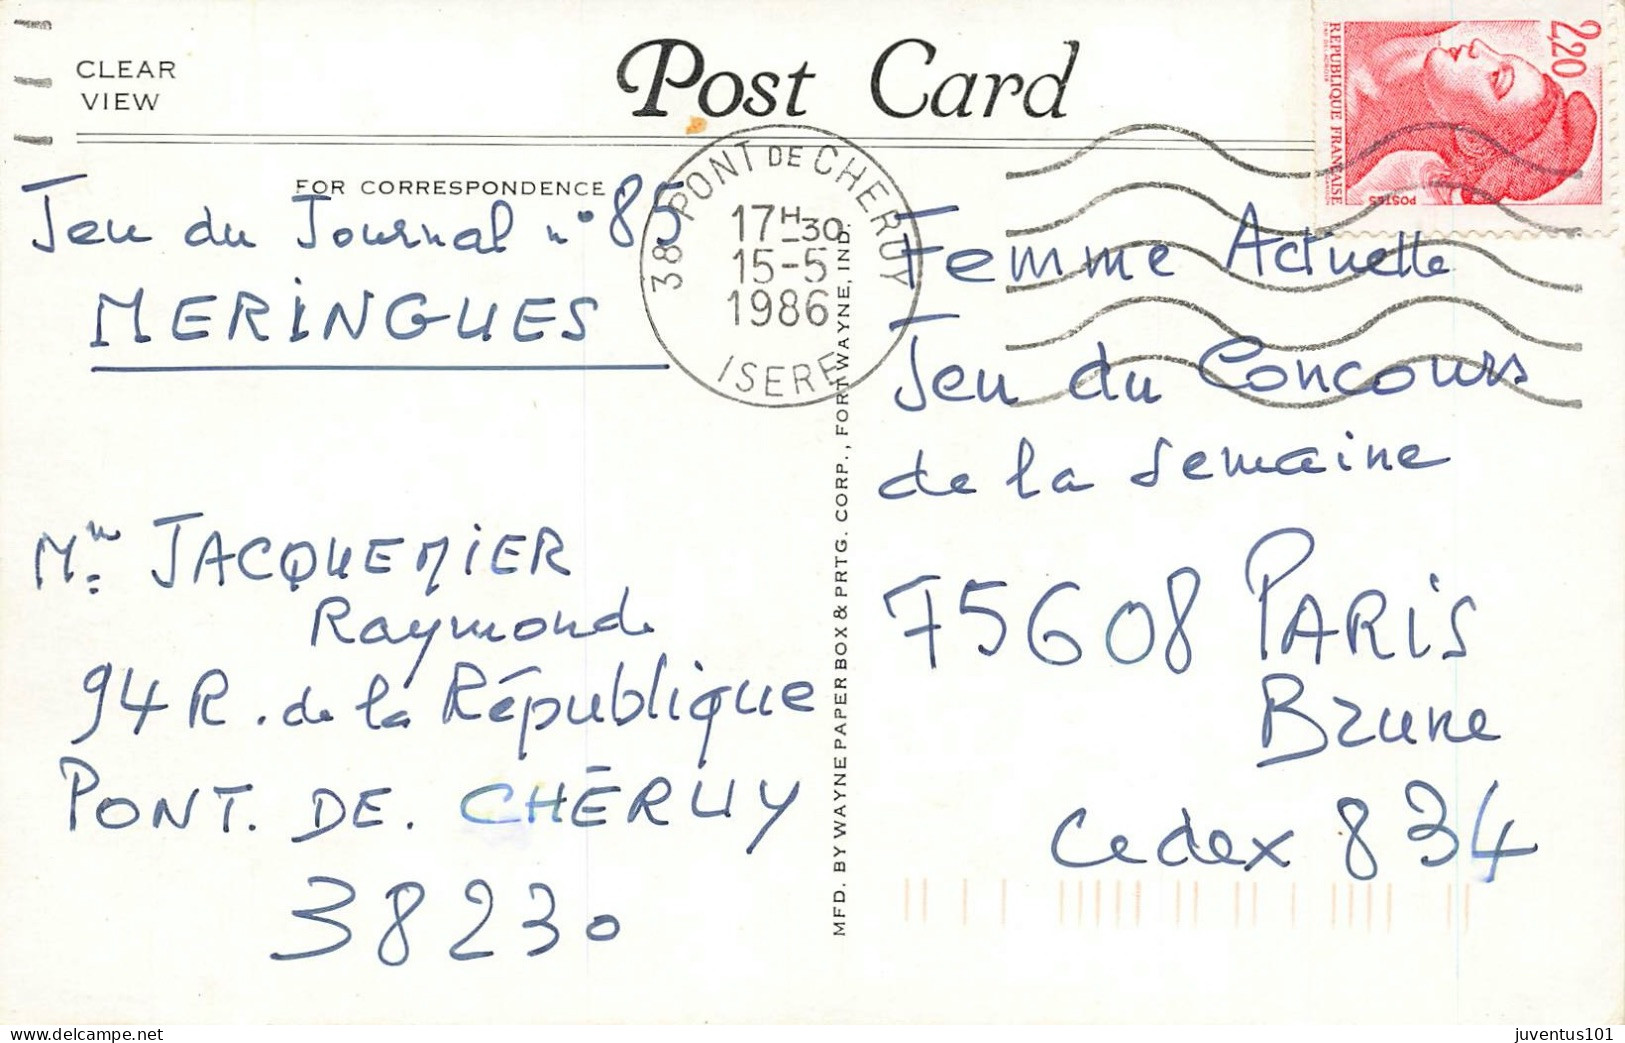 CLEAR
VIEW
Post Card
FOR CORRESPONDENCE
2,20
REPUBLIQUE FRANÇAISE
POSTES
38 PONT DE CHERUY
17H-30
15-5
1986
ISERE
Jeu du Journal n° 85
MERINGUES
Mme JACQUEMIER
Raymonde
94 R. de la République
PONT. DE. CHÉRUY
38230
MFD. BY WAYNE PAPER BOX & PRTG. CORP., FORT WAYNE, IND.
Femme Actuelle
Jeu du Concours
de la Semaine
75608 PARIS
Brune
Cedex 834
juventus101